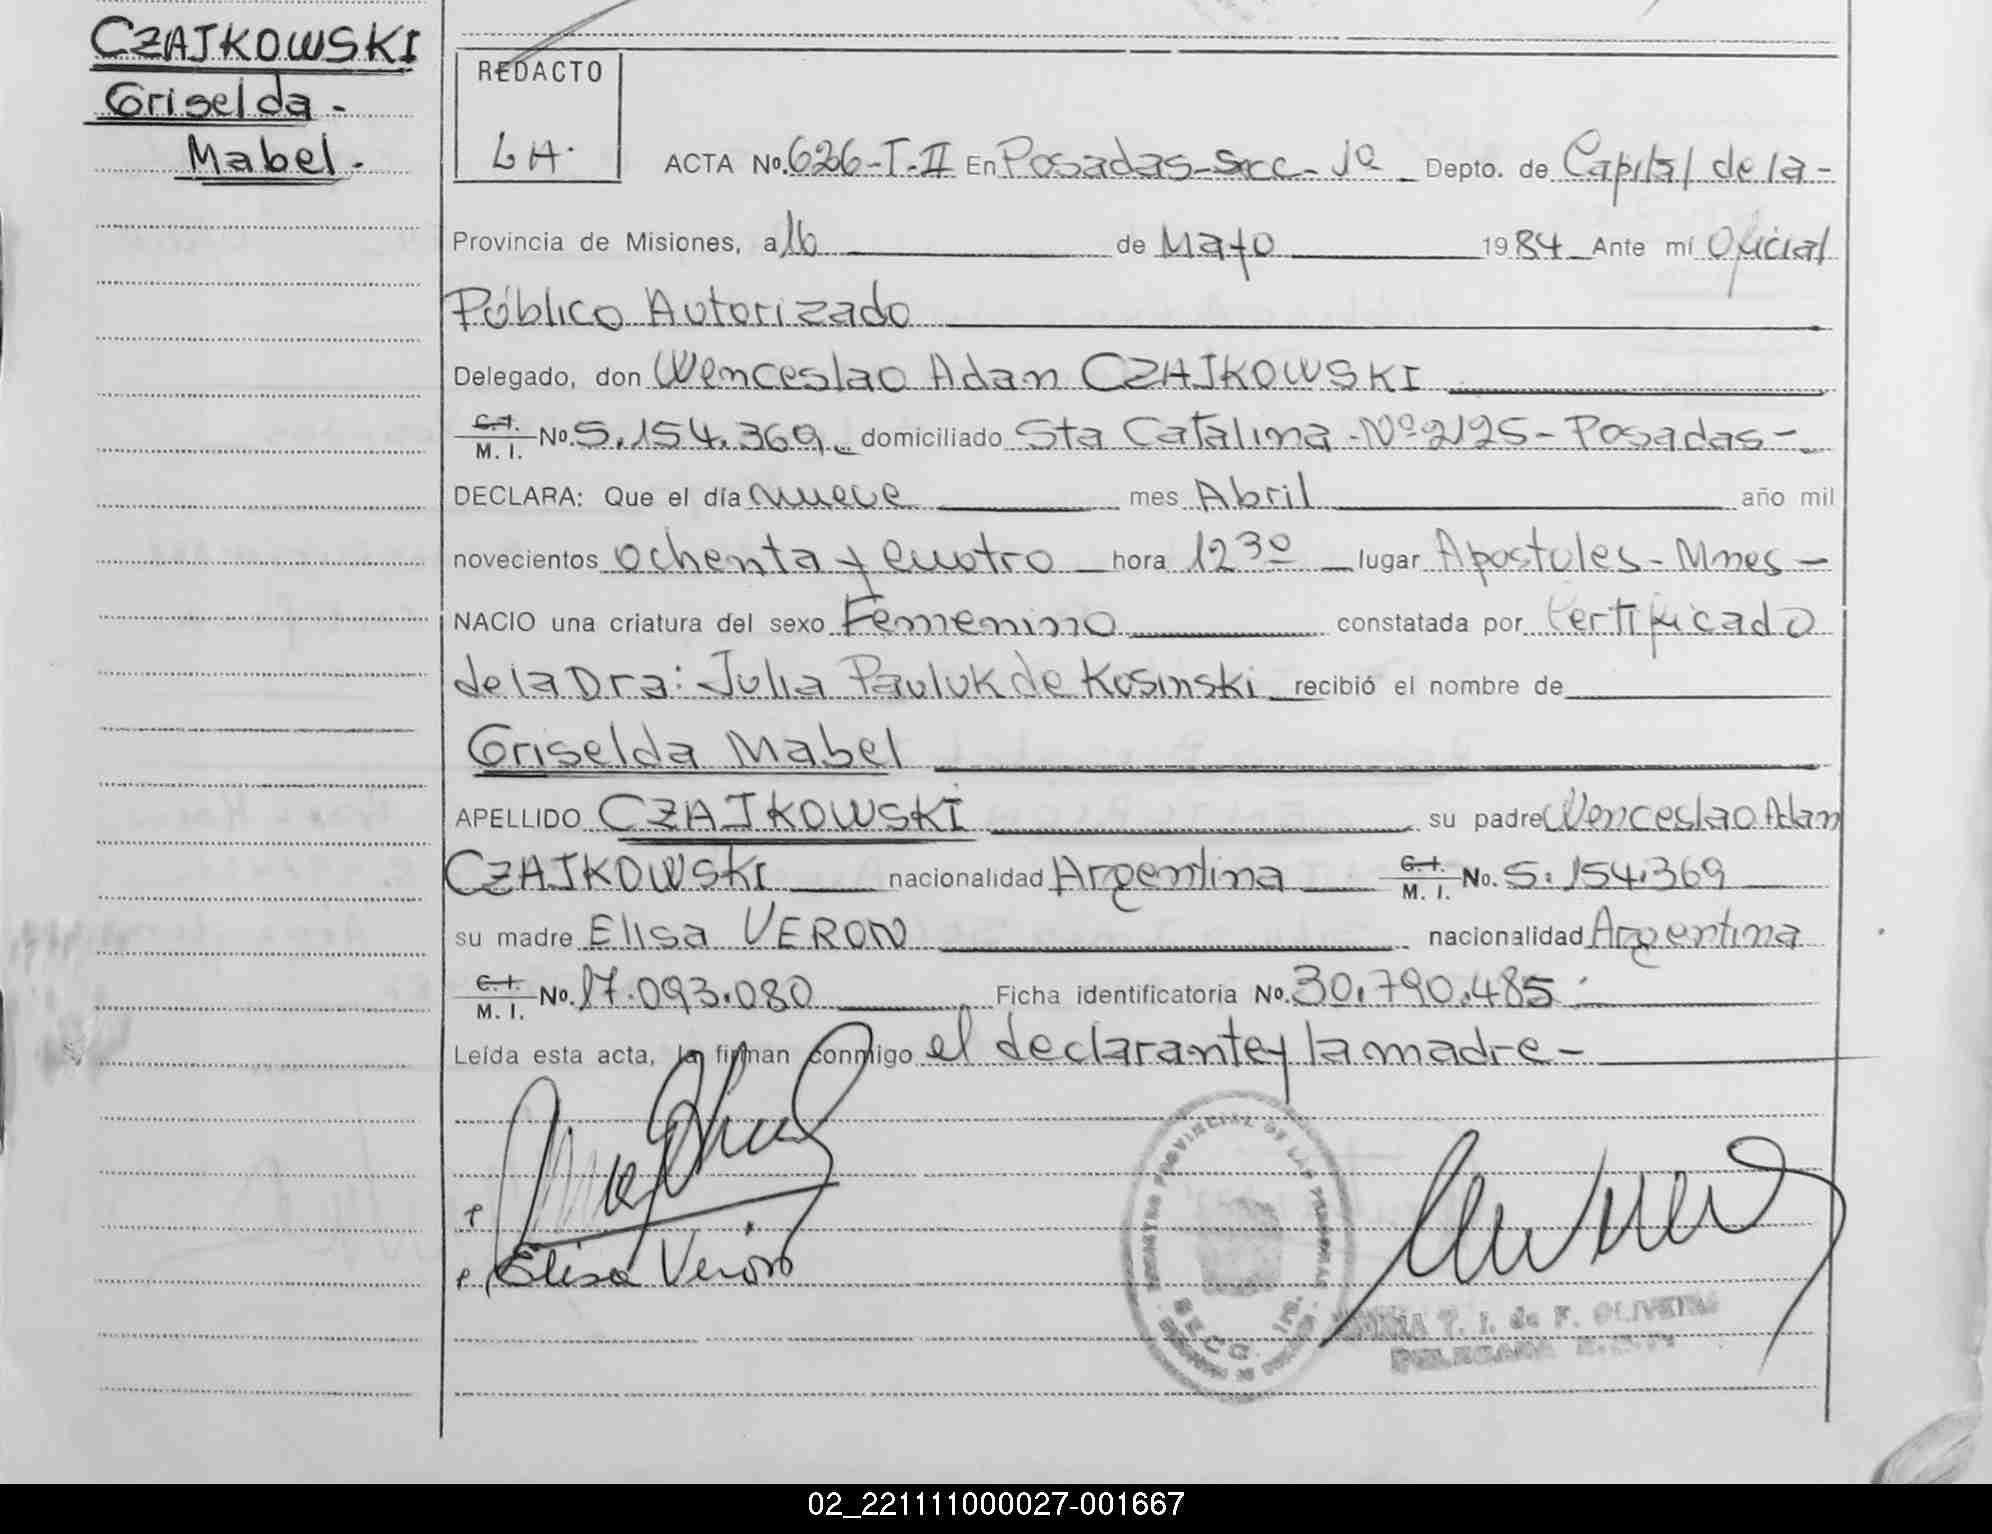 CZAJKOWSKI
Griselda -
Mabel -
REDACTO
LH.
ACTA No. 626-T-II En Posadas-Secc-1ª Depto. de Capital de la-
Provincia de Misiones, a 16 de Mayo 1984 Ante mí Oficial
Público Autorizado
Delegado, don Wenceslao Adan CZAJKOWSKI
C.I. / M. I. No. 5.154.369 domiciliado Sta Catalina-Nº 2125-Posadas-
DECLARA: Que el día nueve mes Abril año mil
novecientos ochenta y cuatro hora 12 30 lugar Apostoles-Mnes-
NACIO una criatura del sexo Femenino constatada por Certificado
de la Dra: Julia Pauluk de Kosinski recibió el nombre de
Griselda Mabel
APELLIDO CZAJKOWSKI su padre Wenceslao Adan
CZAJKOWSKI nacionalidad Argentina C.I. / M. I. No. 5.154.369
su madre Elisa VERON nacionalidad Argentina
C.I. / M. I. No. 17.093.080 Ficha identificatoria No. 30.790.485
Leída esta acta, la firman conmigo el declarante y la madre-
Elisa Verón
REGISTRO PROVINCIAL DE LAS PERSONAS
T. I. de F. OLIVEIRA
DELEGADA
02_221111000027-001667